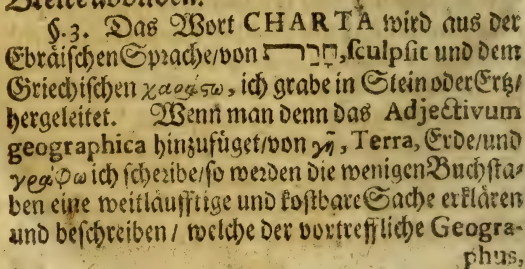 §. 3. Das Wort CHARTA wird aus der
Ebräischen Sprache/von חָרַת, sculpsit und dem
Griechischen χαράσσω, ich grabe in Stein oder Ertz/
hergeleitet. Wenn man denn das Adjectivum
geographica hinzufüget/von γῆ, Terra, Erde/und
γράφω ich schreibe/so werden die wenigen Buchsta-
ben eine weitläufftige und kostbare Sache erklären
und beschreiben / welche der vortreffliche Geogra-
phus,